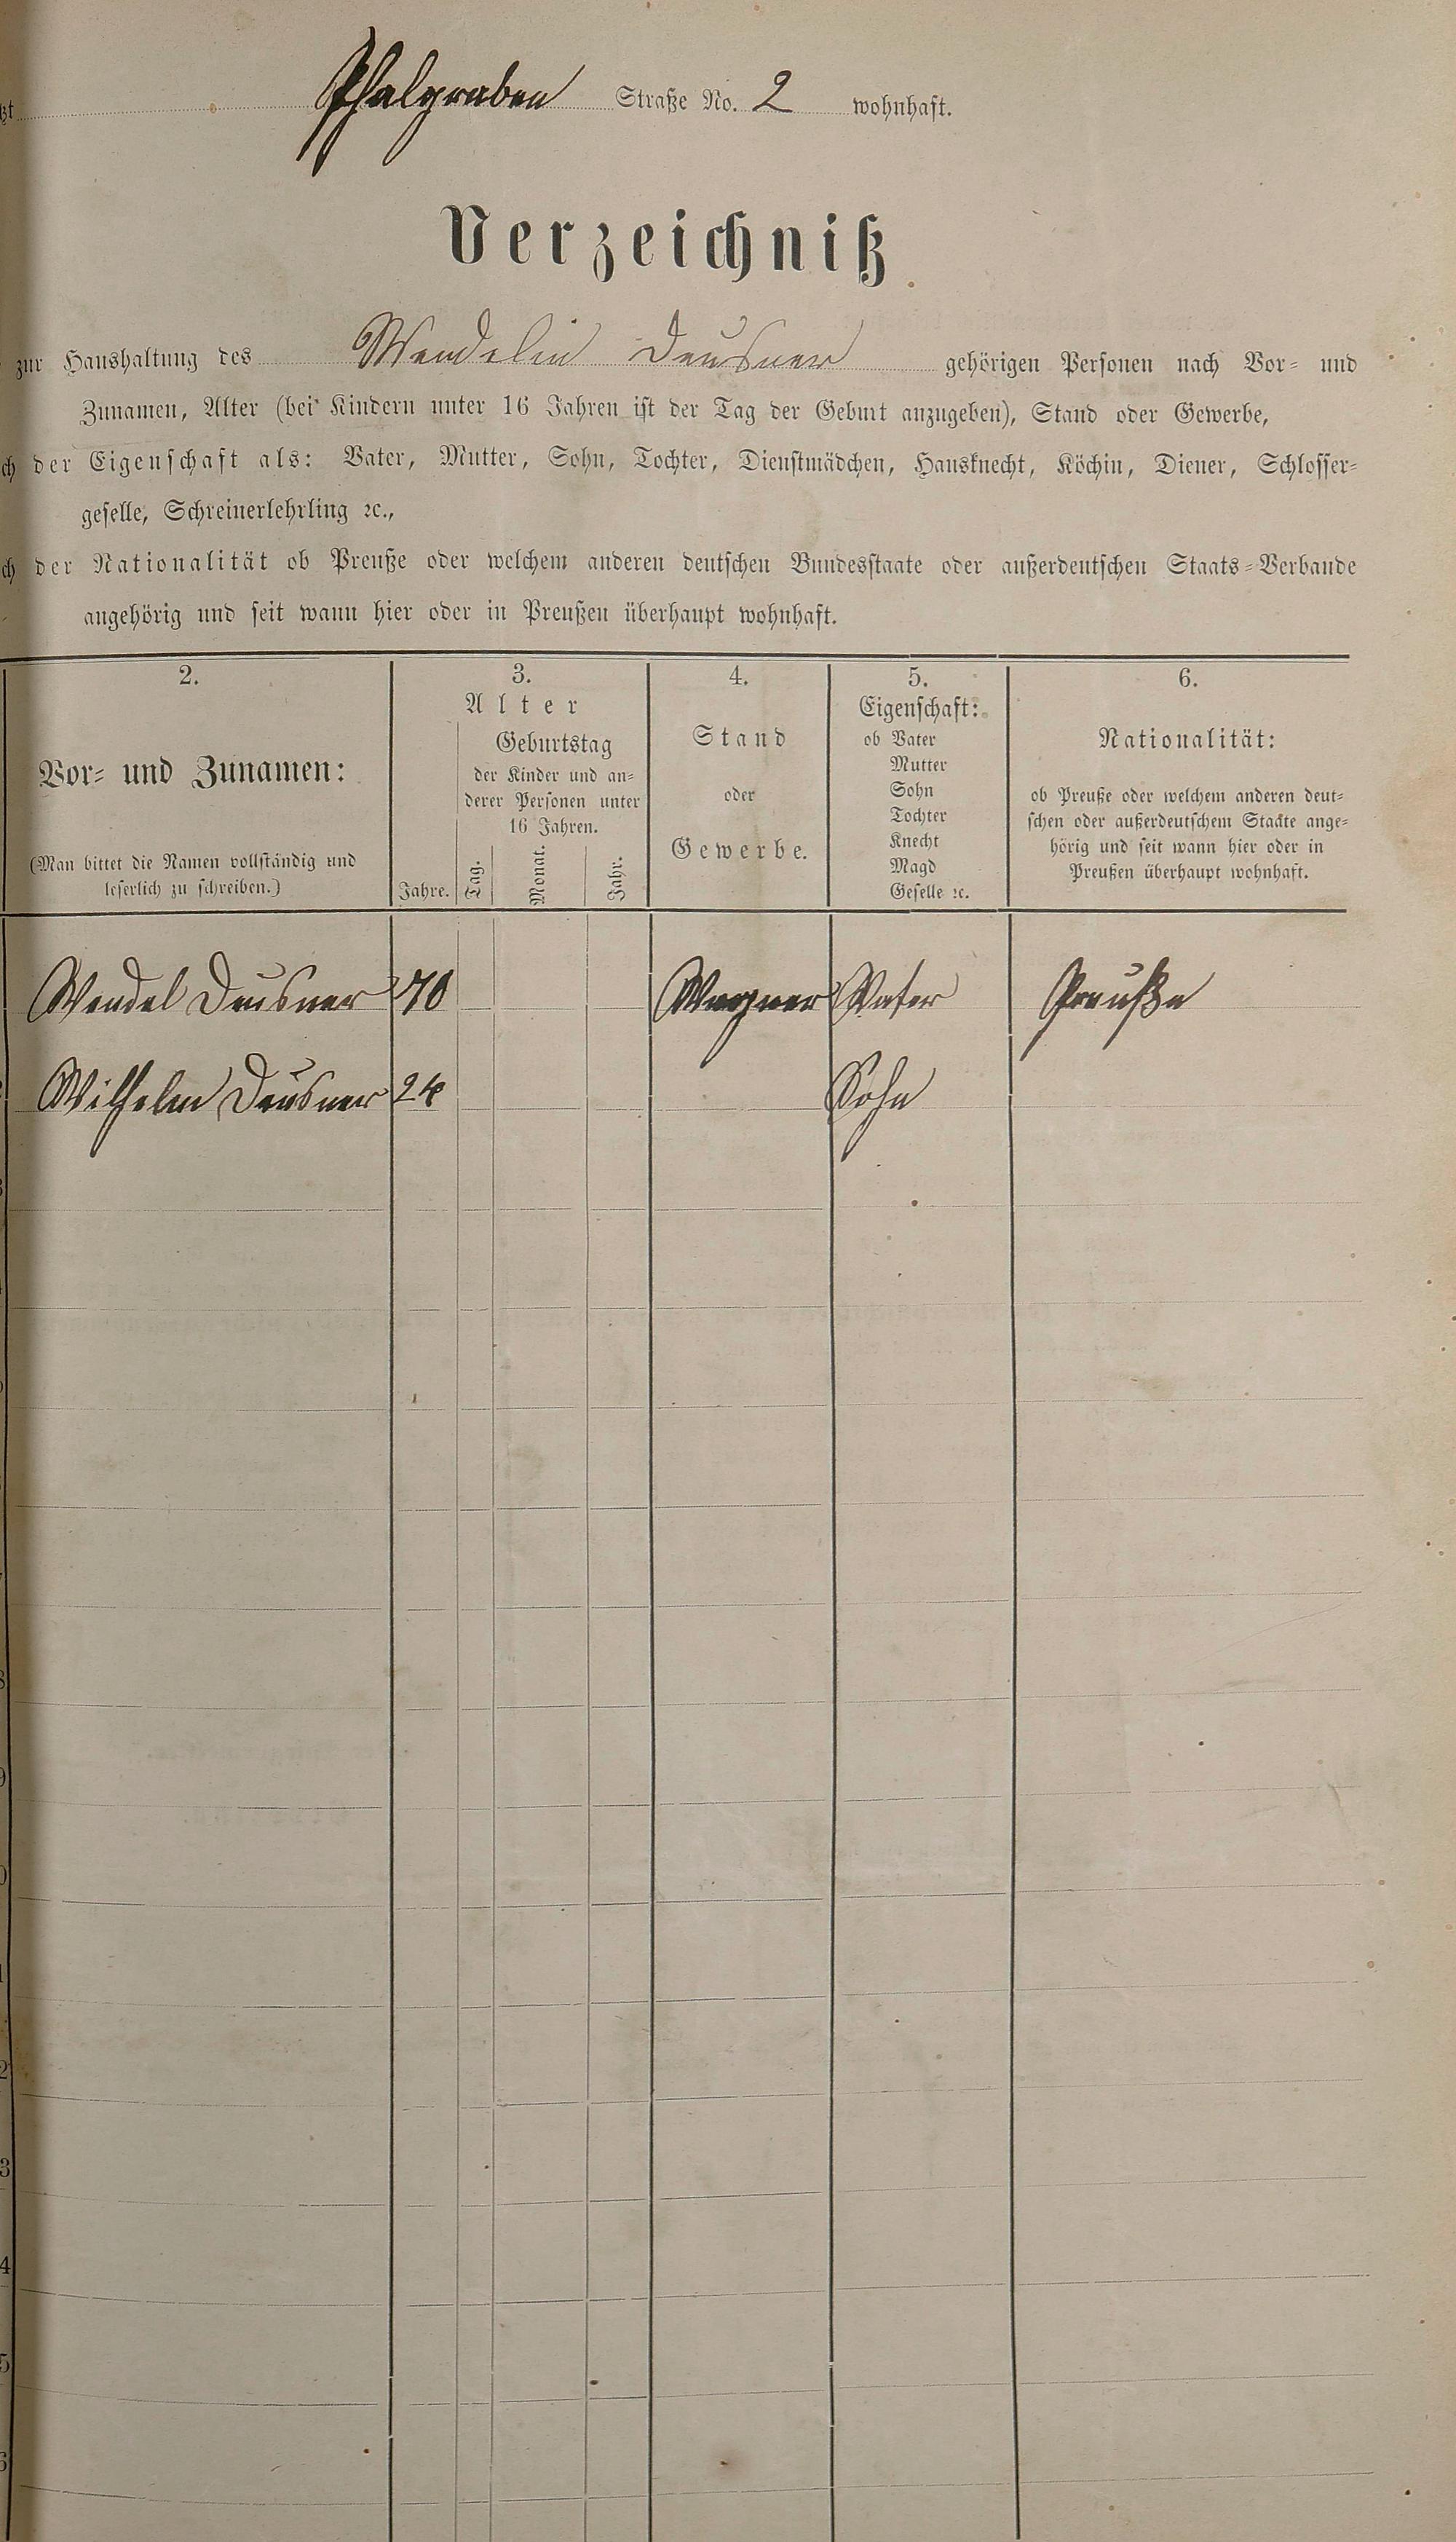 Pfalgraben Straße No. 2 wohnhaft.
Verzeichniß
zur Haushaltung des Wendelin Deusner gehörigen Personen nach Vor- und
Zunamen, Alter (bei Kindern unter 16 Jahren ist der Tag der Geburt anzugeben), Stand oder Gewerbe,
der Eigenschaft als: Vater, Mutter, Sohn, Tochter, Dienstmädchen, Hausknecht, Köchin, Diener, Schlosser-
geselle, Schreinerlehrling ꝛc.,
der Nationalität ob Preuße oder welchem anderen deutschen Bundesstaate oder außerdeutschen Staats-Verbande
angehörig und seit wann hier oder in Preußen überhaupt wohnhaft.
2.
Vor- und Zunamen:
(Man bittet die Namen vollständig und
leserlich zu schreiben.)
3.
Alter
Geburtstag
der Kinder und an-
derer Personen unter
16 Jahren.
Jahre. Tag. Monat. Jahr.
4.
Stand
oder
Gewerbe.
5.
Eigenschaft:
ob Vater
Mutter
Sohn
Tochter
Knecht
Magd
Geselle ꝛc.
6.
Nationalität:
ob Preuße oder welchem anderen deut-
schen oder außerdeutschem Staate ange-
hörig und seit wann hier oder in
Preußen überhaupt wohnhaft.
Wendel Deusner 70 Wagner Vater Preuße
Wilhelm Deusner 24 Sohn